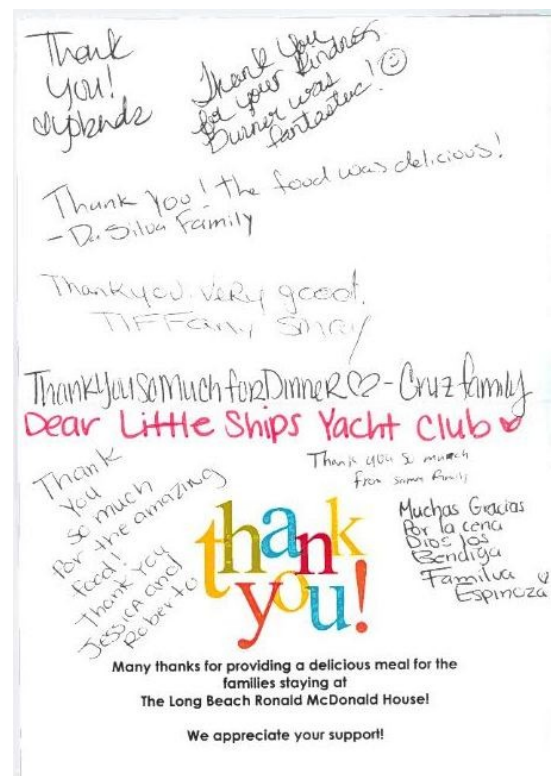 Thank
You!
Thank You
for your Kindness.
Dinner was
fantastic!
Thank You! the food was delicious!
- Da Silva Family
Thankyou. very good.
TIFFany
Thank You So Much for Dinner ♡ - Cruz family
Dear Little Ships Yacht Club
Thank
You
so much
for the amazing
food!
Thank You
JESSICA and
Roberto
Thank you so much
from family
Muchas Gracias
Por la cena
Dios los
Bendiga
Familva
Espinoza
thank
you!
Many thanks for providing a delicious meal for the
families staying at
The Long Beach Ronald McDonald House!
We appreciate your support!